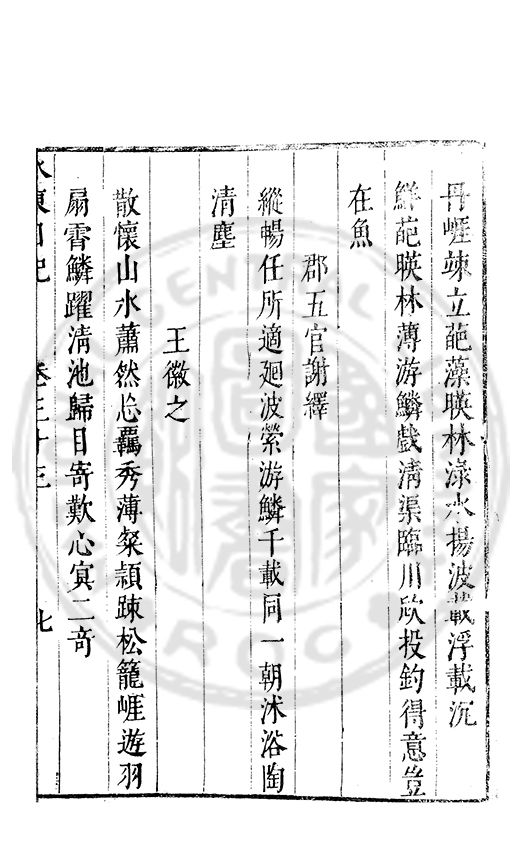 丹崖竦立葩藻暎林淥水揚波載浮載沉
鮮葩暎林薄游鱗戲清渠臨川欣投釣得意豈
在魚
郡五官謝繹
縱暢任所適廻波縈游鱗千載同一朝沭浴陶
清塵
王徽之
散懷山水蕭然忘羈秀薄粲穎踈松籠崖遊羽
扇霄鱗躍清池歸目寄歎心㝠二奇
水東日記 卷三十三 七